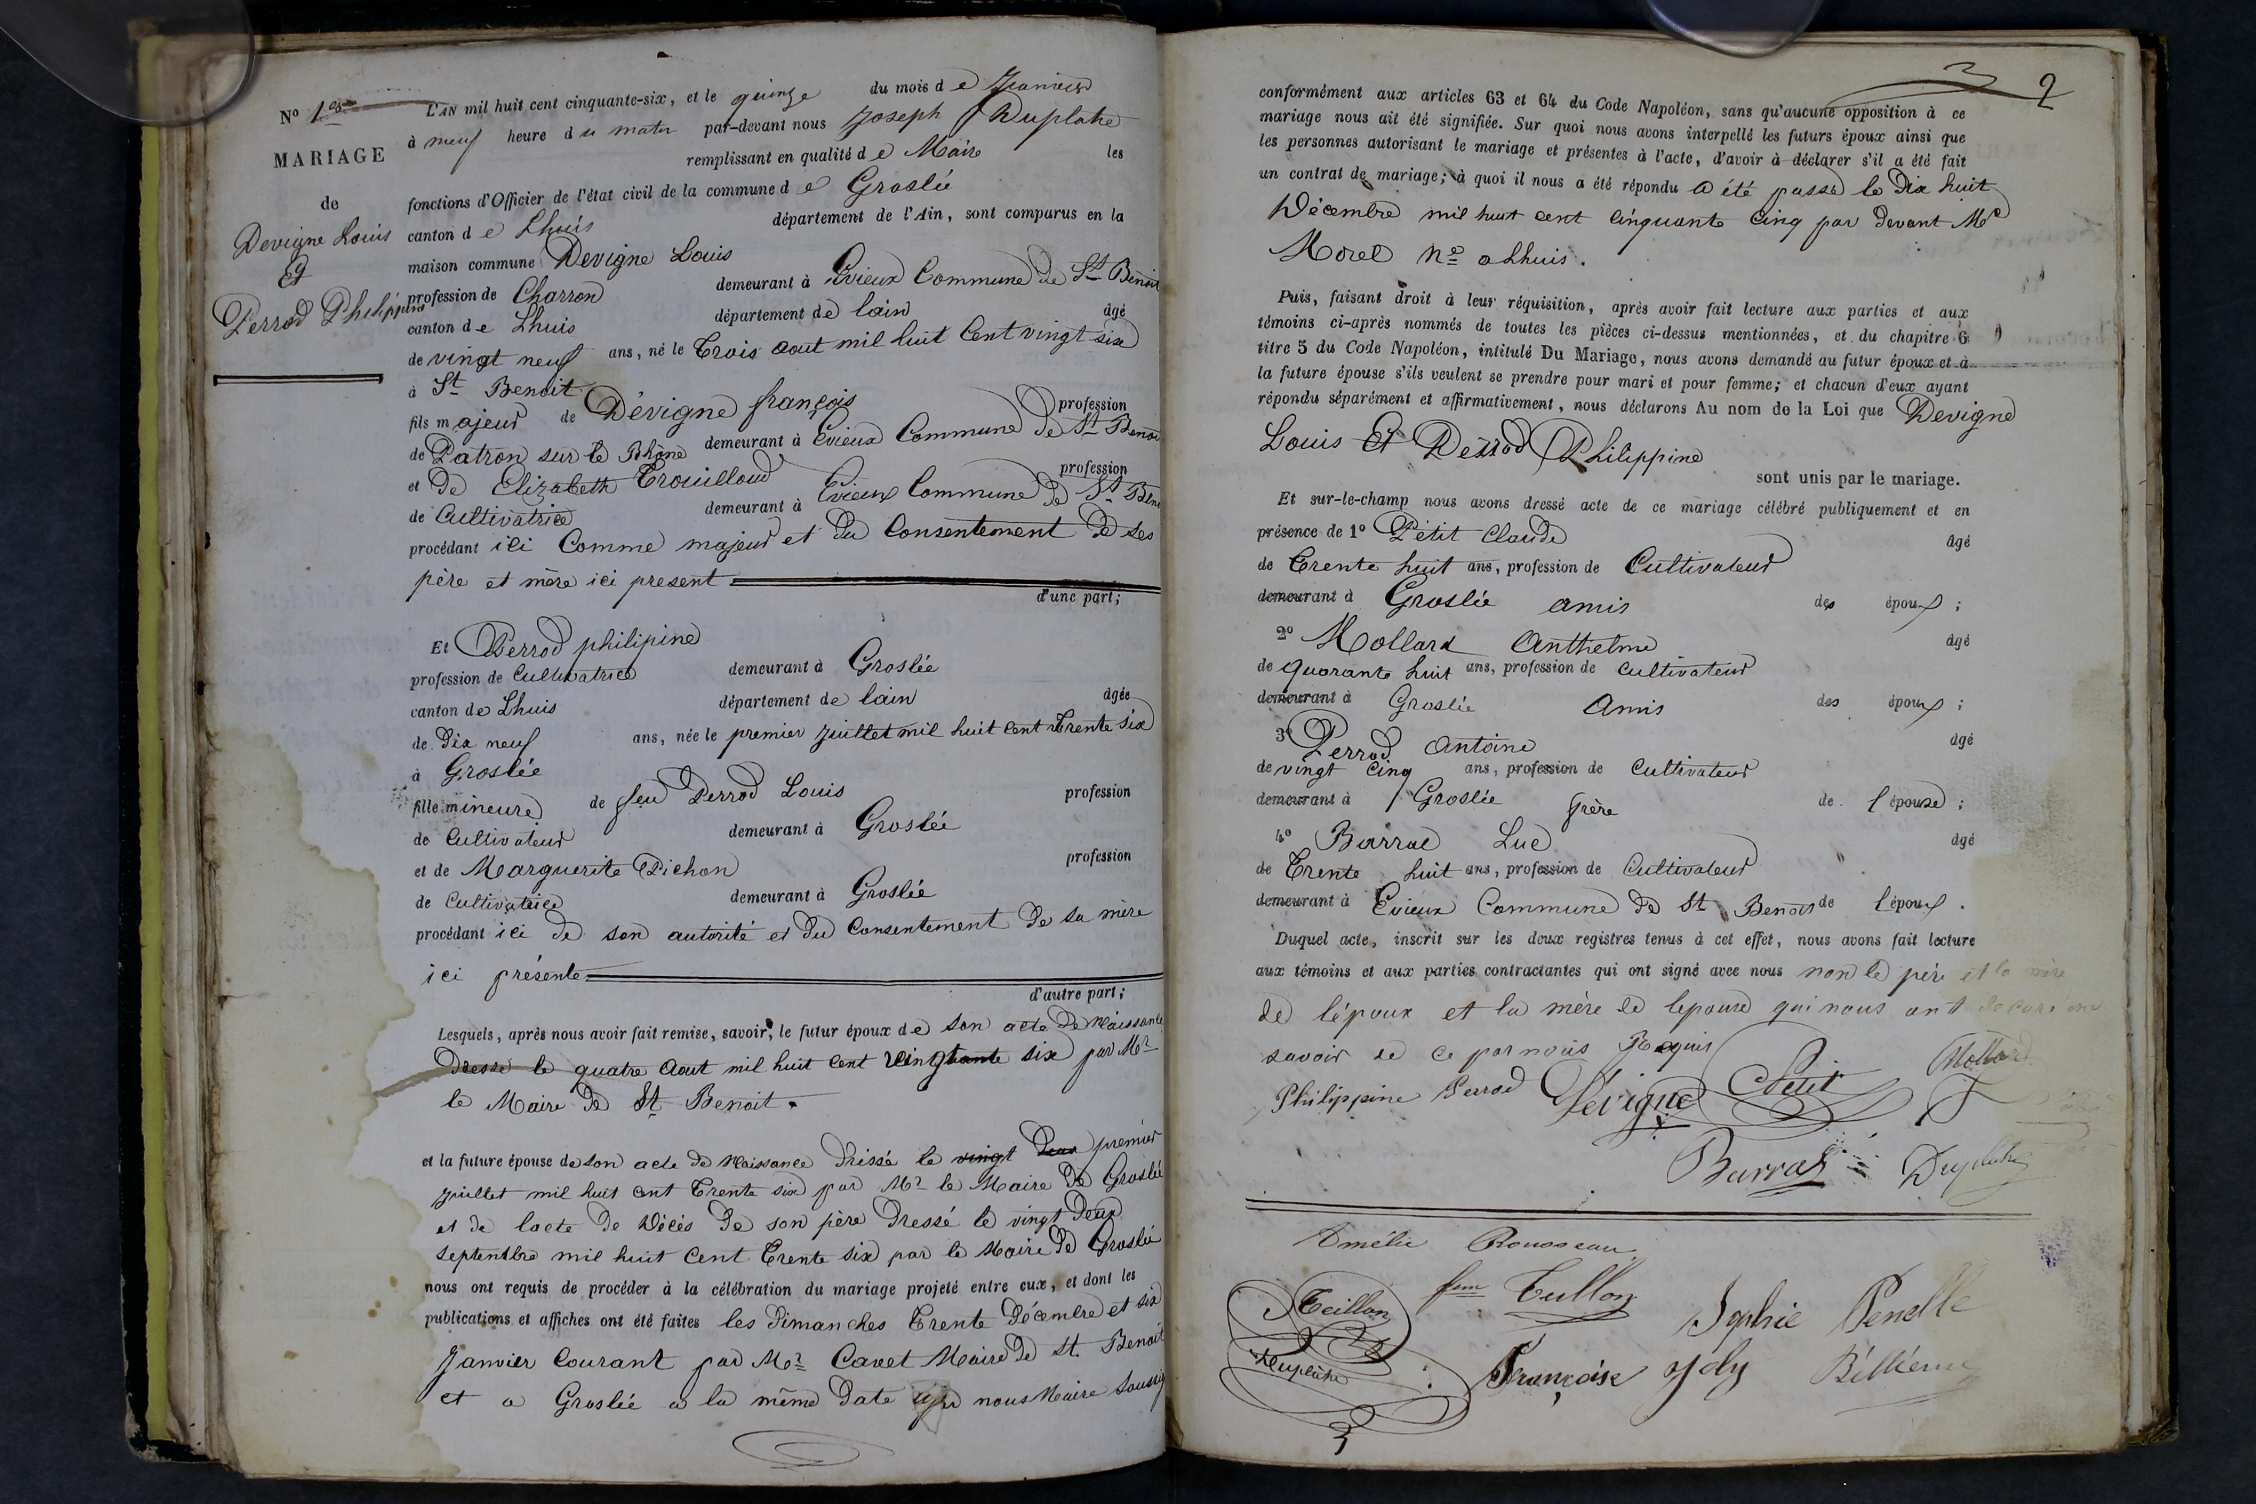 No 1er
MARIAGE
de
Devigne Louis
Et
Perrod Philippine
L'AN mil huit cent cinquante-six, et le quinze du mois de Janvier
à neuf heure du matin par-devant nous Joseph Duplatre
remplissant en qualité de Maire les
fonctions d'Officier de l'état civil de la commune de Groslée
canton de Lhuis département de l'Ain, sont comparus en la
maison commune Devigne Louis
profession de Charron demeurant à Evieux Commune de St Benoit
canton de Lhuis département de lain âgé
de vingt neuf ans, né le Trois aout mil huit Cent vingt six
à St Benoit
fils majeur de Dévigne françois profession
de Patron sur le Rhône demeurant à Evieux Commune de St Benoi
et de Elizabeth Trouilloud profession
de Cultivatrice demeurant à Evieux Commune de St Bene
procédant ici Comme majeur et du Consentement de ses
père et mère ici present
d'une part;
Et Perrod philipine
profession de Cultivatrice demeurant à Groslée
canton de Lhuis département de lain âgée
de Dix neuf ans, née le premier Juillet mil huit cent Trente six
à Groslée
fille mineure de feu Perrod Louis profession
de Cultivateur demeurant à Groslée
et de Marguerite Pichon profession
de Cultivatrice demeurant à Groslée
procédant ici de son autorité et du Consentement de sa mère
ici présente
d'autre part;
Lesquels, après nous avoir fait remise, savoir, le futur époux de son acte de Naissance
Dressé le quatre Aout mil huit cent six par Mr
le Maire de St Benoit.
et la future épouse de son acte de Naissance Dressé le vingt Deux premier
Juillet mil huit cent Trente six par Mr le Maire de Groslée
et de lacte de Décès de son père Dressé le vingt Deux
Septembre mil huit Cent Trente six par le Maire de Groslée
nous ont requis de procéder à la célébration du mariage projeté entre eux, et dont les
publications et affiches ont été faites les Dimanches Trente Décembre et six
Janvier Courant par Mr Cavet Maire de St Benoit
et a Groslée a la même Date nous Maire soussig
2
conformément aux articles 63 et 64 du Code Napoléon, sans qu'aucune opposition à ce
mariage nous ait été signifiée. Sur quoi nous avons interpellé les futurs époux ainsi que
les personnes autorisant le mariage et présentes à l'acte, d'avoir à déclarer s'il a été fait
un contrat de mariage; à quoi il nous a été répondu a été passé le Dix huit
Décembre mil huit cent Cinquante Cinq par Devant Me
Morel Nre a Lhuis.
Puis, faisant droit à leur réquisition, après avoir fait lecture aux parties et aux
témoins ci-après nommés de toutes les pièces ci-dessus mentionnées, et du chapitre 6
titre 5 du Code Napoléon, intitulé Du Mariage, nous avons demandé au futur époux et à
la future épouse s'ils veulent se prendre pour mari et pour femme; et chacun d'eux ayant
répondu séparément et affirmativement, nous déclarons Au nom de la Loi que Devigne
Louis Et Perrod Philippine
sont unis par le mariage.
Et sur-le-champ nous avons dressé acte de ce mariage célébré publiquement et en
présence de 1o Pétit Claude âgé
de Trente huit ans, profession de Cultivateur
demeurant à Groslée amis des époux ;
2o Mollard Anthelme âgé
de quarante huit ans, profession de Cultivateur
demeurant à Groslée Amis des époux ;
3o Perrod Antoine âgé
de vingt Cinq ans, profession de Cultivateur
demeurant à Groslée frère de l'épouse ;
4o Barral Luc âgé
de Trente huit ans, profession de Cultivateur
demeurant à Evieux Commune de St Benois de l'époux.
Duquel acte, inscrit sur les deux registres tenus à cet effet, nous avons fait lecture
aux témoins et aux parties contractantes qui ont signé avec nous non le père et la mère
de l'époux et la mère de lepouse qui nous ont
savoir de ce par nous Requis
Philippine Perrod Dévigne Petit Mollard
Barral Duplatre
Amélie Rousseau
Teillon fme Tullon Sophie Penelle
Duplatre Françoise Joly